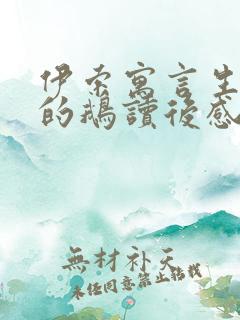 伊索寓言生
的鵝讀後感
無材补天
未经同意禁止转载